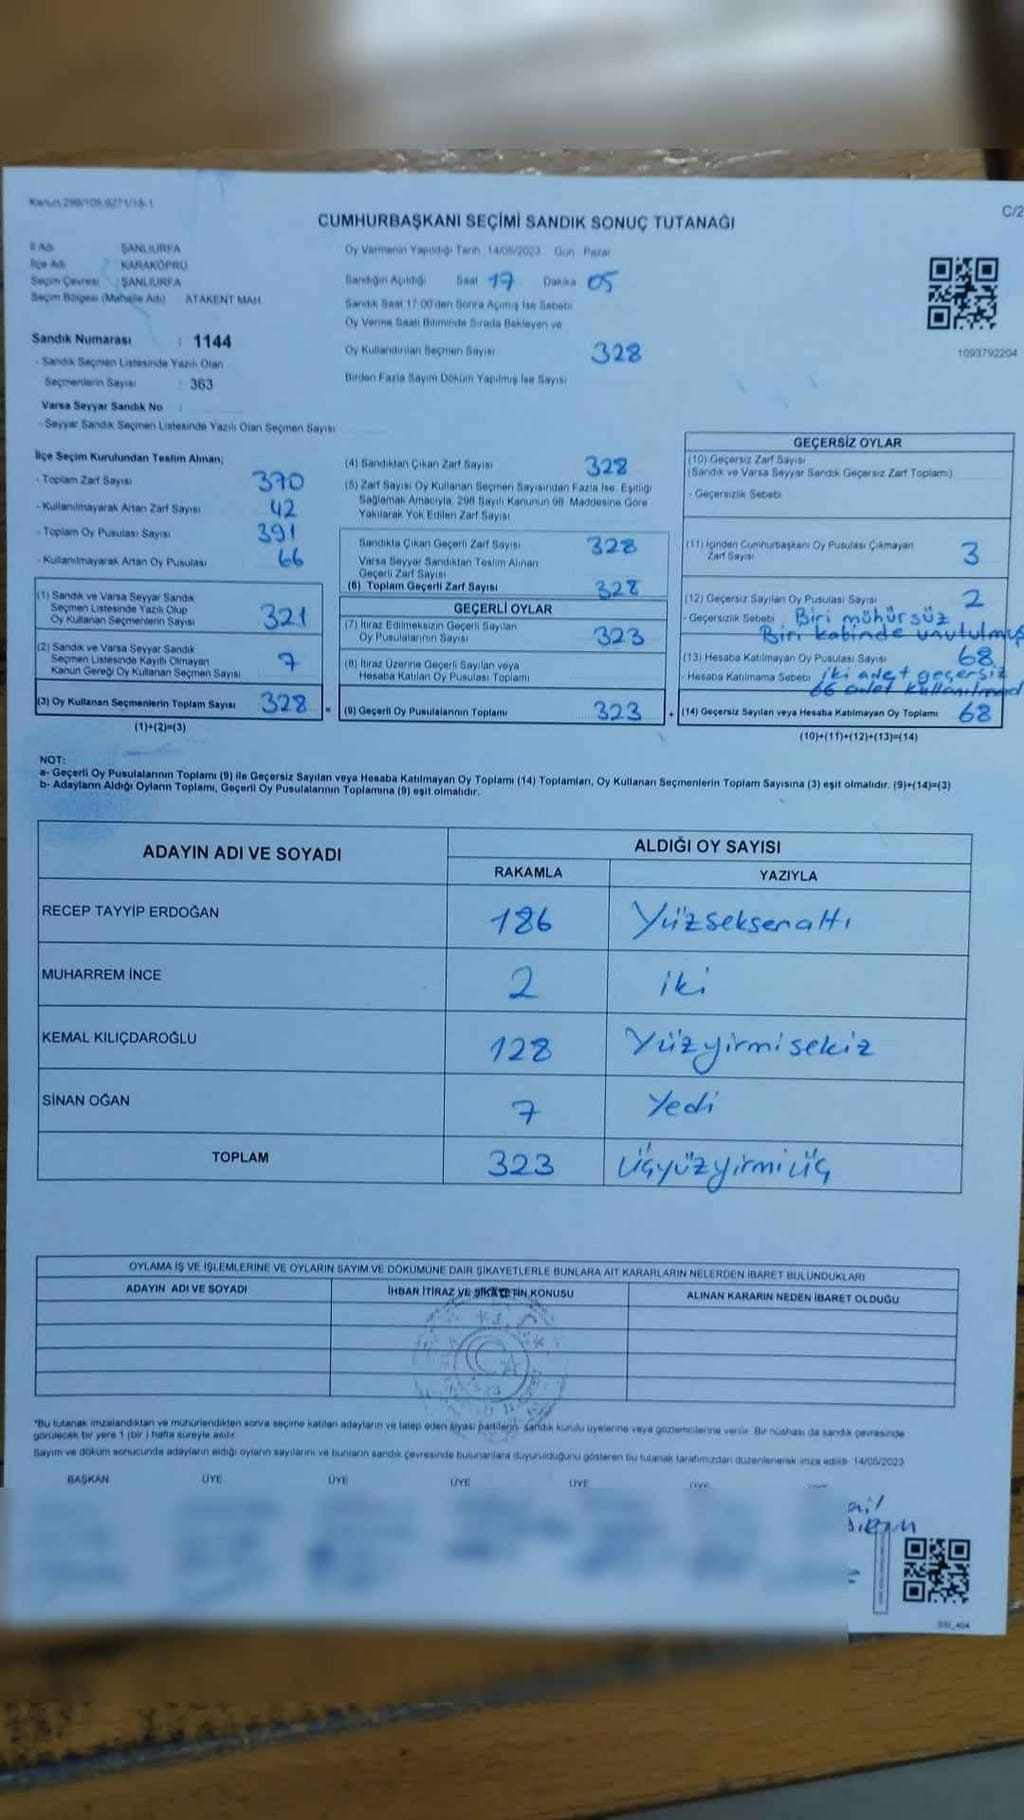 Kanun 298/105,6271/18-1
C/2
CUMHURBAŞKANI SEÇİMİ SANDIK SONUÇ TUTANAĞI
İl Adı ŞANLIURFA
İlçe Adı KARAKÖPRÜ
Seçim Çevresi : ŞANLIURFA
Seçim Bölgesi (Mahalle Adı) ATAKENT MAH.
Sandık Numarası : 1144
- Sandık Seçmen Listesinde Yazılı Olan
Seçmenlerin Sayısı : 363
Varsa Seyyar Sandık No :
- Seyyar Sandık Seçmen Listesinde Yazılı Olan Seçmen Sayısı
Oy Vermenin Yapıldığı Tarih 14/05/2023 Gün Pazar
Sandığın Açıldığı Saat 17 Dakika 05
Sandık Saat 17:00'den Sonra Açılmış İse Sebebi
Oy Verme Saati Bitiminde Sırada Bekleyen ve
Oy Kullandırılan Seçmen Sayısı 328
Birden Fazla Sayım Döküm Yapılmış İse Sayısı
1093792204
İlçe Seçim Kurulundan Teslim Alınan;
- Toplam Zarf Sayısı 370
- Kullanılmayarak Artan Zarf Sayısı 42
- Toplam Oy Pusulası Sayısı 391
- Kullanılmayarak Artan Oy Pusulası 66
(1) Sandık ve Varsa Seyyar Sandık
Seçmen Listesinde Yazılı Olup
Oy Kullanan Seçmenlerin Sayısı 321
(2) Sandık ve Varsa Seyyar Sandık
Seçmen Listesinde Kayıtlı Olmayan
Kanun Gereği Oy Kullanan Seçmen Sayısı 7
(3) Oy Kullanan Seçmenlerin Toplam Sayısı 328
(1)+(2)=(3)
(4) Sandıktan Çıkan Zarf Sayısı 328
(5) Zarf Sayısı Oy Kullanan Seçmen Sayısından Fazla İse, Eşitliği
Sağlamak Amacıyla, 298 Sayılı Kanunun 98. Maddesine Göre
Yakılarak Yok Edilen Zarf Sayısı
Sandıkta Çıkan Geçerli Zarf Sayısı 328
Varsa Seyyar Sandıktan Teslim Alınan
Geçerli Zarf Sayısı
(6) Toplam Geçerli Zarf Sayısı 328
GEÇERLİ OYLAR
(7) İtiraz Edilmeksizin Geçerli Sayılan
Oy Pusulalarının Sayısı 323
(8) İtiraz Üzerine Geçerli Sayılan veya
Hesaba Katılan Oy Pusulası Toplamı
= (9) Geçerli Oy Pusulalarının Toplamı 323
GEÇERSİZ OYLAR
(10) Geçersiz Zarf Sayısı
(Sandık ve Varsa Seyyar Sandık Geçersiz Zarf Toplamı)
- Geçersizlik Sebebi
(11) İçinden Cumhurbaşkanı Oy Pusulası Çıkmayan
Zarf Sayısı 3
(12) Geçersiz Sayılan Oy Pusulası Sayısı 2
- Geçersizlik Sebebi Biri mühürsüz
Biri kabinde unutulmuş
(13) Hesaba Katılmayan Oy Pusulası Sayısı 68
- Hesaba Katılmama Sebebi iki adet geçersiz
66 adet kullanılmad
+ (14) Geçersiz Sayılan veya Hesaba Katılmayan Oy Toplamı 68
(10)+(11)+(12)+(13)=(14)
NOT:
a- Geçerli Oy Pusulalarının Toplamı (9) ile Geçersiz Sayılan veya Hesaba Katılmayan Oy Toplamı (14) Toplamları, Oy Kullanan Seçmenlerin Toplam Sayısına (3) eşit olmalıdır. (9)+(14)=(3)
b- Adayların Aldığı Oyların Toplamı, Geçerli Oy Pusulalarının Toplamına (9) eşit olmalıdır.
ADAYIN ADI VE SOYADI ALDIĞI OY SAYISI
RAKAMLA YAZIYLA
RECEP TAYYİP ERDOĞAN 186 Yüzseksenaltı
MUHARREM İNCE 2 iki
KEMAL KILIÇDAROĞLU 128 Yüzyirmisekiz
SİNAN OĞAN 7 Yedi
TOPLAM 323 Üçyüzyirmiüç
OYLAMA İŞ VE İŞLEMLERİNE VE OYLARIN SAYIM VE DÖKÜMÜNE DAİR ŞİKAYETLERLE BUNLARA AİT KARARLARIN NELERDEN İBARET BULUNDUKLARI
ADAYIN ADI VE SOYADI İHBAR İTİRAZ VE ŞİKAYETİN KONUSU ALINAN KARARIN NEDEN İBARET OLDUĞU
*Bu tutanak imzalandıktan ve mühürlendikten sonra seçime katılan adayların ve talep eden siyasi partilerin sandık kurulu üyelerine veya gözlemcilerine verilir. Bir nüshası da sandık çevresinde
görülecek bir yere 1 (bir) hafta süreyle asılır.
Sayım ve döküm sonucunda adayların aldığı oyların sayılarını ve bunların sandık çevresinde bulunanlara duyurulduğunu gösteren bu tutanak tarafımızdan düzenlenerek imza edildi. 14/05/2023
BAŞKAN ÜYE ÜYE ÜYE ÜYE ÜYE